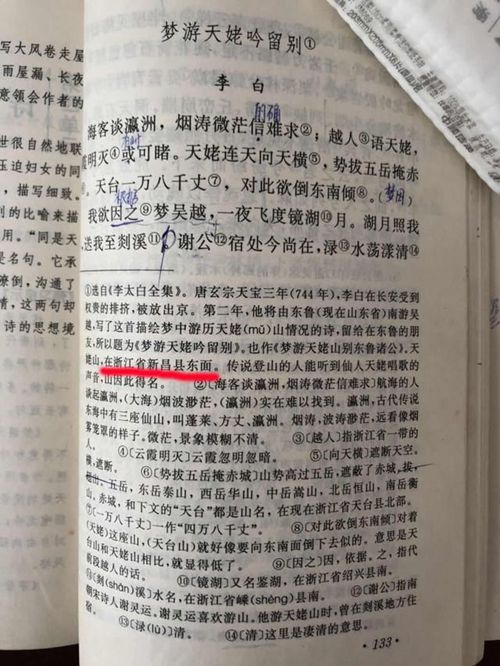 写大风卷走屋
雨屋漏，长夜
意领会作者的
世很自然地联
压迫妇女的同
描写细致。
到的比喻来描
用。“同是天
是名句。它承
寥倒，沟通了
情，这两句却
诗的思想境
梦游天姥吟留别①
李白
的确
海客谈瀛洲，烟涛微茫信难求②；越人③语天姥，
有时
霞明灭④或可睹。天姥连天向天横⑤，势拔五岳掩赤
。天台一万八千丈⑦，对此欲倒东南倾⑧。（梦因）
根据
我欲因之⑨梦吴越，一夜飞度镜湖⑩月。湖月照我
送我至剡溪⑪。谢公⑫宿处今尚在，渌⑬水荡漾清⑭
①选自《李太白全集》。唐玄宗天宝三年（744年），李白在长安受到
权贵的排挤，被放出京。第二年，他将由东鲁（现在山东省）南游吴
越，写了这首描绘梦中游历天姥（mǔ）山情况的诗，留给在东鲁的朋
友，所以题为《梦游天姥吟留别》。也作《梦游天姥山别东鲁诸公》。天
姥山，在浙江省新昌县东面。传说登山的人能听到仙人天姥唱歌的
声音，山因此得名。　②〔海客谈瀛洲，烟涛微茫信难求〕航海的人
谈起瀛洲，（大海）烟波渺茫，（瀛洲）实在难以找到。瀛洲，古代传说
东海中有三座仙山，叫蓬莱、方丈、瀛洲。烟涛，波涛渺茫，远看像烟
雾笼罩的样子。微茫，景象模糊不清。　③〔越人〕指浙江省一带的
人。　④〔云霞明灭〕云霞忽明忽暗。　⑤〔向天横〕遮断天空。
横，遮断。　⑥〔势拔五岳掩赤城〕山势高过五岳，遮蔽了赤城。拔，
超出。五岳，东岳泰山，西岳华山，中岳嵩山，北岳恒山，南岳衡
山。赤城，和下文的“天台”都是山名，在现在浙江省天台县北部。
⑦〔一万八千丈〕一作“四万八千丈”。　⑧〔对此欲倒东南倾〕对着
（天姥）这座山，（天台山）就好像要向东南面倒下去似的。意思是天
台山和天姥山相比，就显得低了。　⑨〔因之〕因，依据。之，指代
前段越人的话。　⑩〔镜湖〕又名鉴湖，在浙江省绍兴县南。
⑪〔剡（shàn）溪〕水名，在浙江省嵊（shèng）县南。　⑫〔谢公〕指南
朝宋诗人谢灵运。谢灵运喜欢游山。他游天姥山时，曾在剡溪地方住
宿。　⑬〔渌（lù）〕清。　⑭〔清〕这里是凄清的意思。
·133·